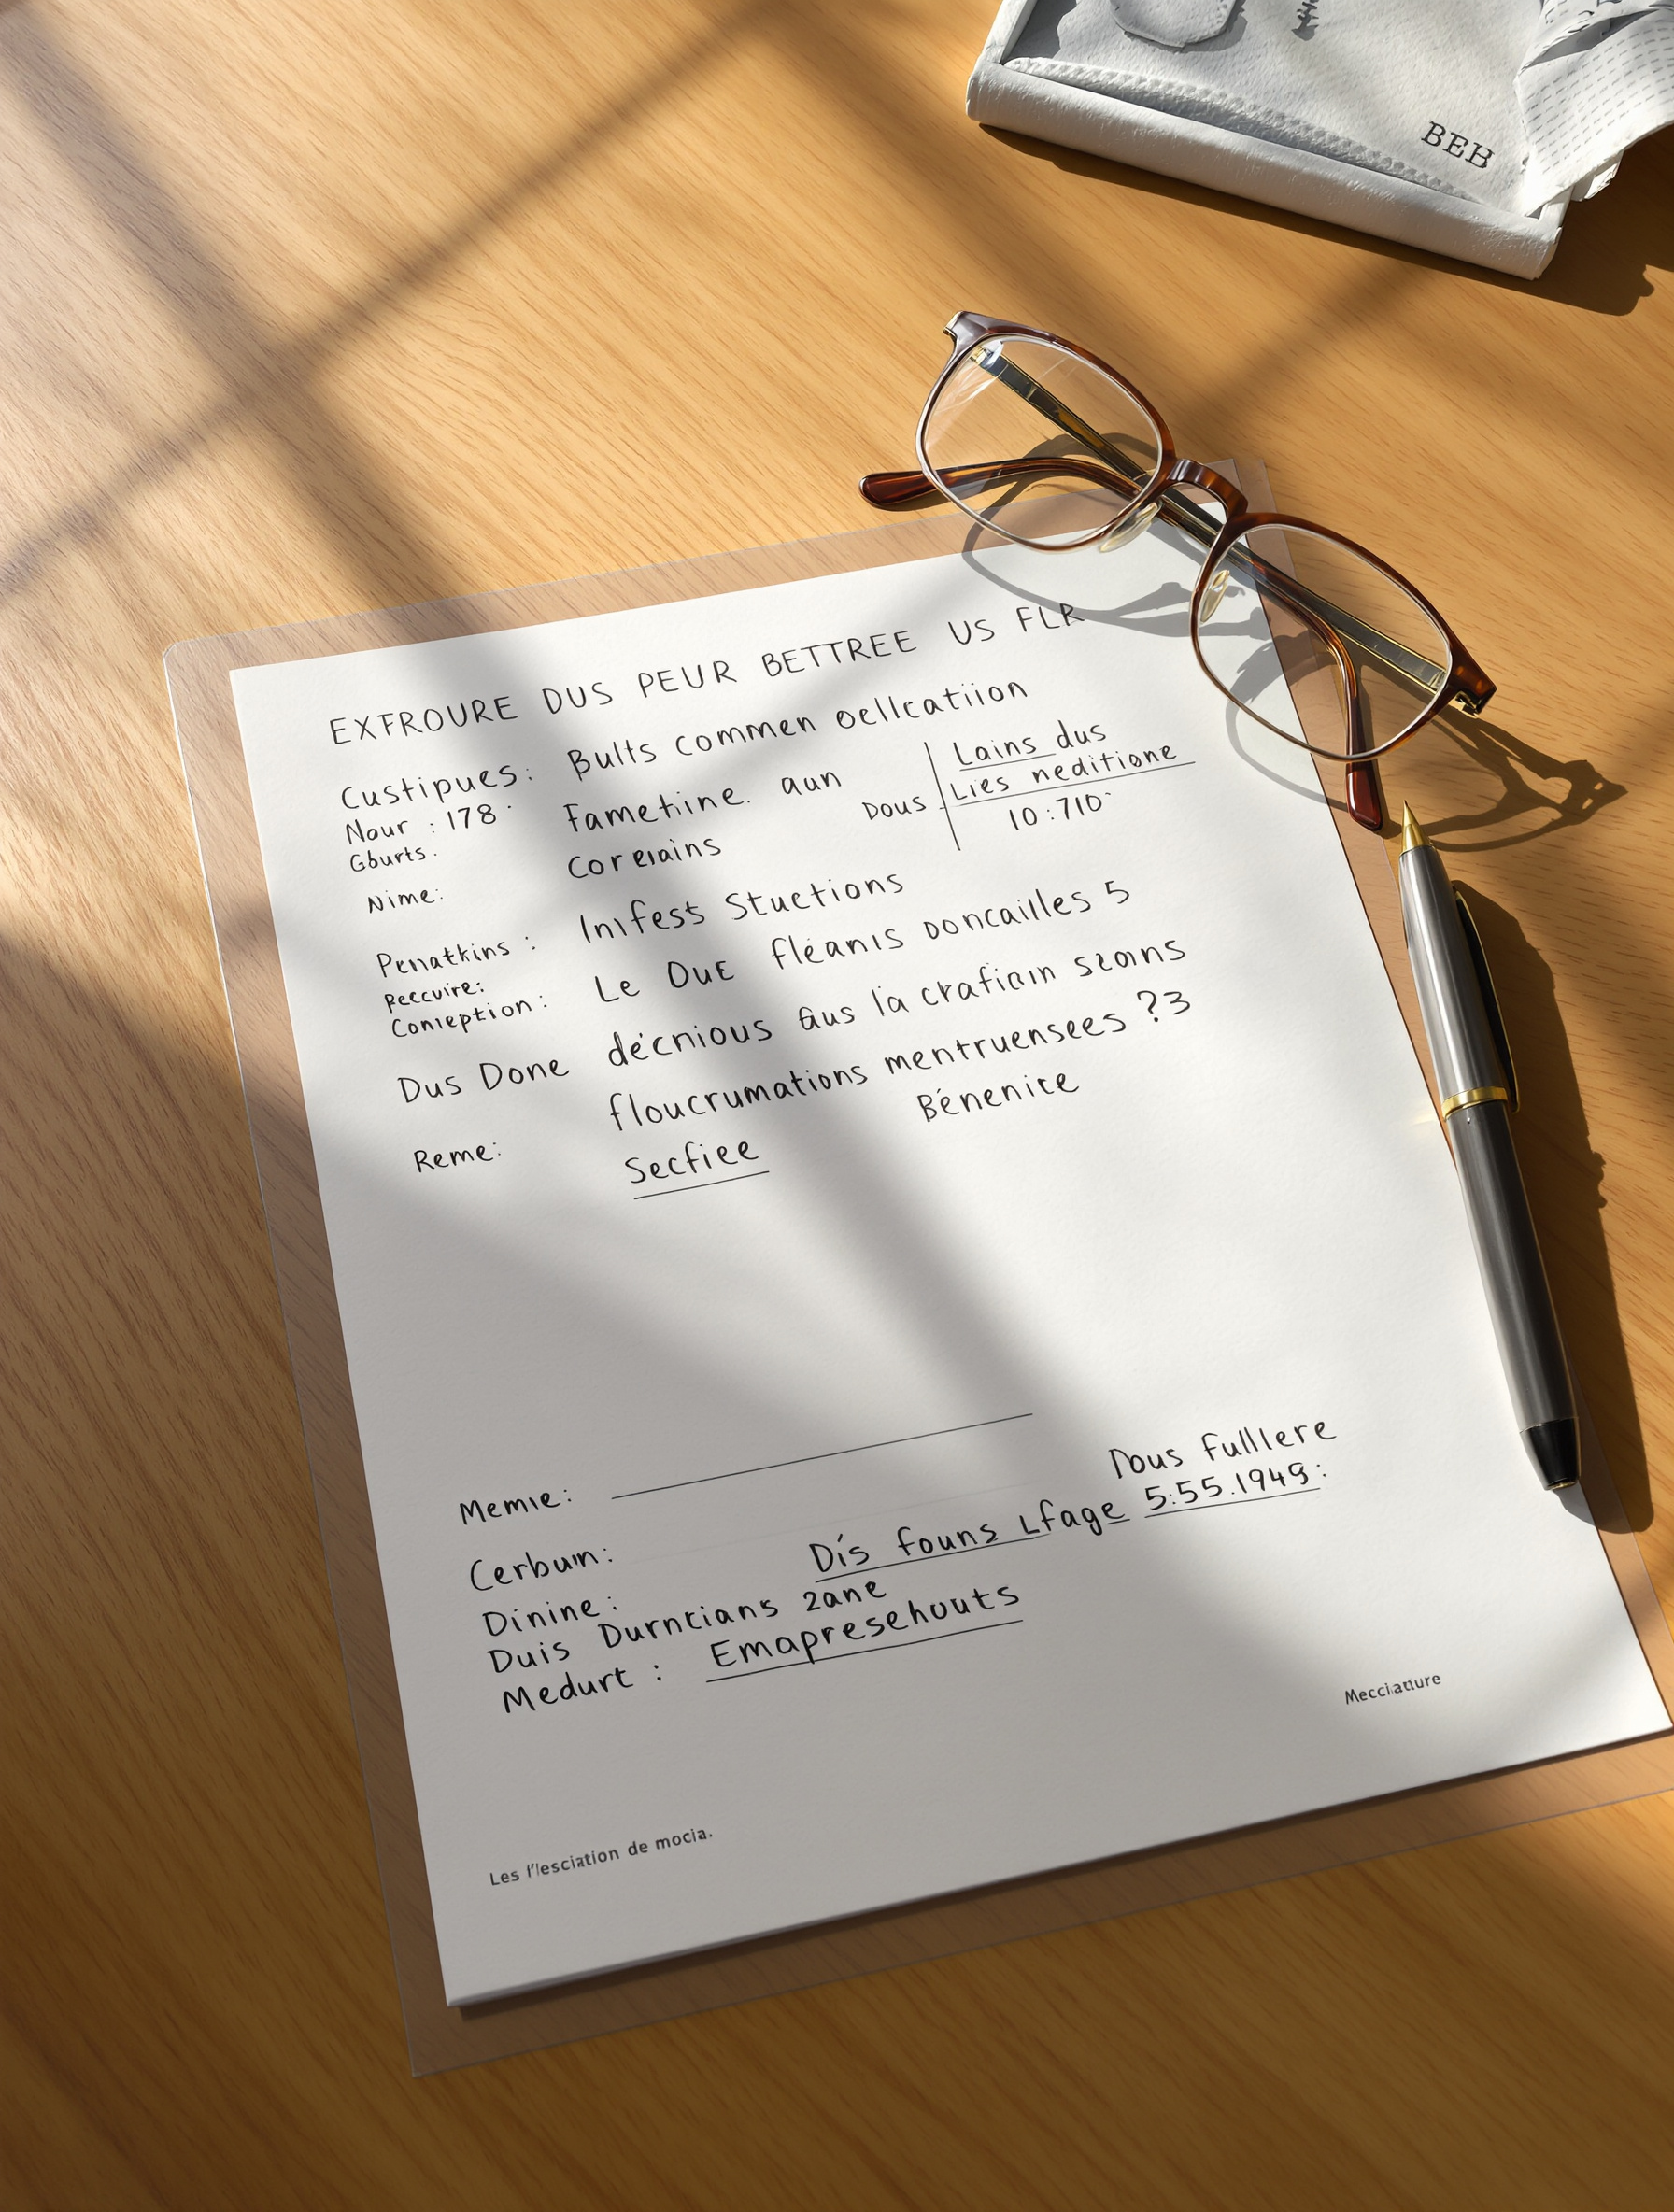 BEB
EXFROURE DUS PEUR BETTREE US FLR
Custipues: Bults commen oellcatiion
Nour : 178 Fametiine. aun
Gburts.
Dous
Lains dus
Lies neditione
10:710
Nime: Corelains
Penatkins : Inifess Stuctions
Reccuire:
Conieption: Le Oue fléanis Doncailles 5
Dus Done décnious aus la crafiain scains
floucrumations mentruensees ?3
Reme: Secfiee Bénenice
Memie:
Dous Fulllere
5:55.1949:
Cerbum: Dís founs Lfage
Dinine:
Duis Durncians 2ane
Medurt : Emapresehouts
Mecciature
Les l'lesciation de mocia.